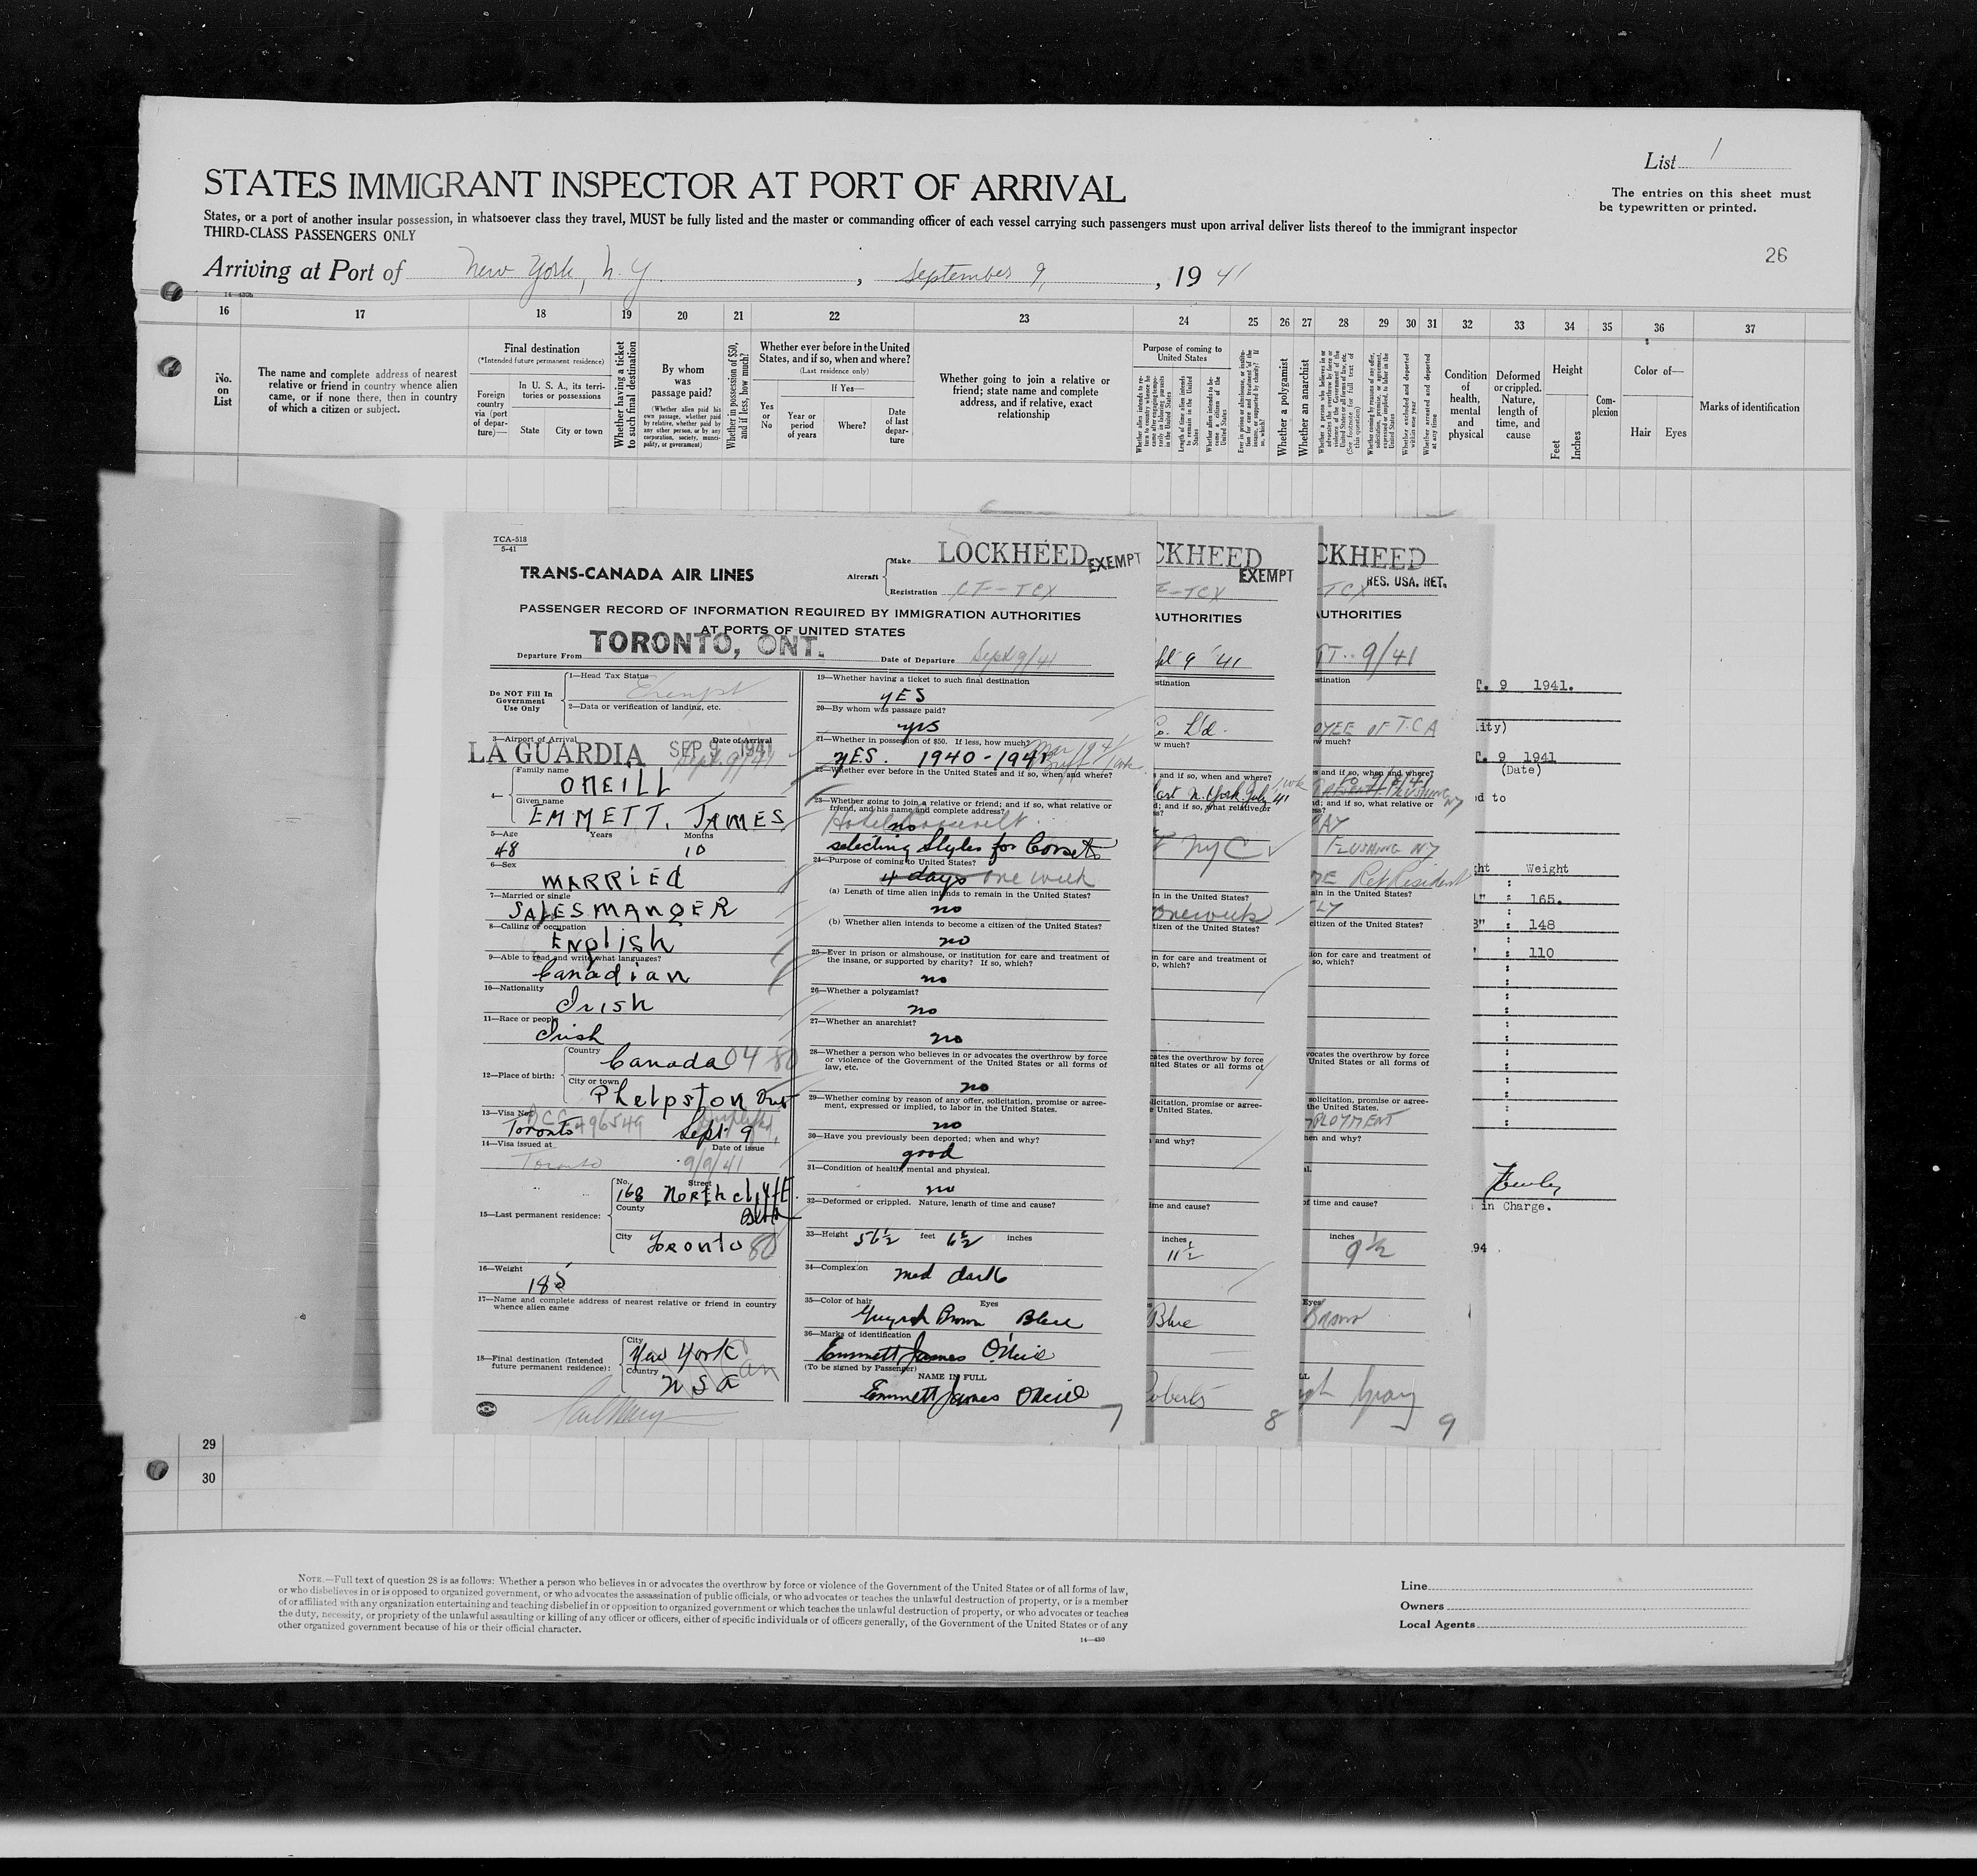 List 1
STATES IMMIGRANT INSPECTOR AT PORT OF ARRIVAL
The entries on this sheet must
be typewritten or printed.
States, or a port of another insular possession, in whatsoever class they travel, MUST be fully listed and the master or commanding officer of each vessel carrying such passengers must upon arrival deliver lists thereof to the immigrant inspector
THIRD-CLASS PASSENGERS ONLY
26
Arriving at Port of New York, N. Y. , September 9, , 19 41
16 17 18 19 20 21 22 23 24 25 26 27 28 29 30 31 32 33 34 35 36 37
No. on List
The name and complete address of nearest
relative or friend in country whence alien
came, or if none there, then in country
of which a citizen or subject.
Final destination
(*Intended future permanent residence)
Foreign country via (port of departure)—
In U. S. A., its territories or possessions
State City or town
Whether having a ticket to such final destination
By whom was passage paid?
(Whether alien paid his own passage, whether paid by relative, whether paid by any other person, or by any corporation, society, municipality, or government)
Whether in possession of $50, and if less, how much?
Whether ever before in the United
States, and if so, when and where?
(Last residence only)
Yes or No
If Yes—
Year or period of years
Where?
Date of last departure
Whether going to join a relative or
friend; state name and complete
address, and if relative, exact
relationship
Purpose of coming to
United States
Length of time alien intends to remain in the United States
Whether alien intends to become a citizen of the United States
Whether a polygamist
Whether an anarchist
Condition of health, mental and physical
Deformed or crippled. Nature, length of time, and cause
Height
Feet Inches
Complexion
Color of—
Hair Eyes
Marks of identification
TCA-518
5-41
TRANS-CANADA AIR LINES
Aircraft
Make LOCKHEED EXEMPT
Registration CF-TCX
PASSENGER RECORD OF INFORMATION REQUIRED BY IMMIGRATION AUTHORITIES
AT PORTS OF UNITED STATES
Departure From TORONTO, ONT.
Date of Departure Sept 9/41
Do NOT Fill In
Government
Use Only
1—Head Tax Status
Exempt
2—Data or verification of landing, etc.
3—Airport of Arrival Date of Arrival
LA GUARDIA SEP 9 1941
Sept. 9/41
4—
Family name
ONEILL
Given name
EMMETT, JAMES
5—Age Years Months
48 10
6—Sex
MARRIED
7—Married or single
SALES MANGER
8—Calling or occupation
English
9—Able to read and write what languages?
Canadian
10—Nationality
Irish
11—Race or people
Irish
12—Place of birth:
Country
Canada 04 80
City or town
Phelpston Ont
13—Visa No.
496549
Toronto Sept 9
14—Visa issued at Date of issue
Toronto 9/9/41
15—Last permanent residence:
No. Street
168 Northcliffe
County
Blvd
City
Toronto 80
16—Weight
185
17—Name and complete address of nearest relative or friend in country
whence alien came
18—Final destination (Intended
future permanent residence):
City
New York
Country
USA
19—Whether having a ticket to such final destination
YES
20—By whom was passage paid?
yes
21—Whether in possession of $50. If less, how much?
YES. 1940-1941
22—Whether ever before in the United States and if so, when and where?
23—Whether going to join a relative or friend; and if so, what relative or
friend, and his name and complete address?
Hotel Roosevelt
no
selecting Styles for Corsets
24—Purpose of coming to United States?
4 days one week
(a) Length of time alien intends to remain in the United States?
no
(b) Whether alien intends to become a citizen of the United States?
no
25—Ever in prison or almshouse, or institution for care and treatment of
the insane, or supported by charity? If so, which?
no
26—Whether a polygamist?
no
27—Whether an anarchist?
no
28—Whether a person who believes in or advocates the overthrow by force
or violence of the Government of the United States or of all forms of
law, etc.
no
29—Whether coming by reason of any offer, solicitation, promise or agree-
ment, expressed or implied, to labor in the United States.
no
30—Have you previously been deported; when and why?
good
31—Condition of health, mental and physical.
no
32—Deformed or crippled. Nature, length of time and cause?
33—Height 5 6½ feet 6½ inches
34—Complexion
med dark
35—Color of hair Eyes
Greyish Brown Blue
36—Marks of identification
Emmett James O'Neill
(To be signed by Passenger)
NAME IN FULL
Emmett James O'Neill
7
CKHEED
EXEMPT
F-TCX
AUTHORITIES
9 '41
stination
Co. Ltd.
w much?
s and if so, when and where?
last N. York July '41
d; and if so, what relative or
NYC
in in the United States?
one week
tizen of the United States?
n for care and treatment of
o, which?
cates the overthrow by force
nited States or all forms of
licitation, promise or agree-
e United States.
and why?
me and cause?
inches
11½
Blue
oberts
8
CKHEED
RES. USA. RET.
TCX
AUTHORITIES
PT. 9/41
stination
OYEE OF T.C.A
ow much?
s and if so, when and where?
d; and if so, what relative or
FLUSHING NY
Ret Resident
ain in the United States?
LY
citizen of the United States?
ion for care and treatment of
so, which?
vocates the overthrow by force
United States or all forms of
solicitation, promise or agree-
the United States.
PLOYMENT
hen and why?
of time and cause?
inches
9½
Eyes
Brown
LL
gh Gray
9
T. 9 1941.
ity)
T. 9 1941
(Date)
d to
ht Weight
165.
148
110
in Charge.
94
29
30
NOTE.—Full text of question 28 is as follows: Whether a person who believes in or advocates the overthrow by force or violence of the Government of the United States or of all forms of law,
or who disbelieves in or is opposed to organized government, or who advocates the assassination of public officials, or who advocates or teaches the unlawful destruction of property, or is a member
of or affiliated with any organization entertaining and teaching disbelief in or opposition to organized government or which teaches the unlawful destruction of property, or who advocates or teaches
the duty, necessity, or propriety of the unlawful assaulting or killing of any officer or officers, either of specific individuals or of officers generally, of the Government of the United States or of any
other organized government because of his or their official character.
14—430
Line
Owners
Local Agents